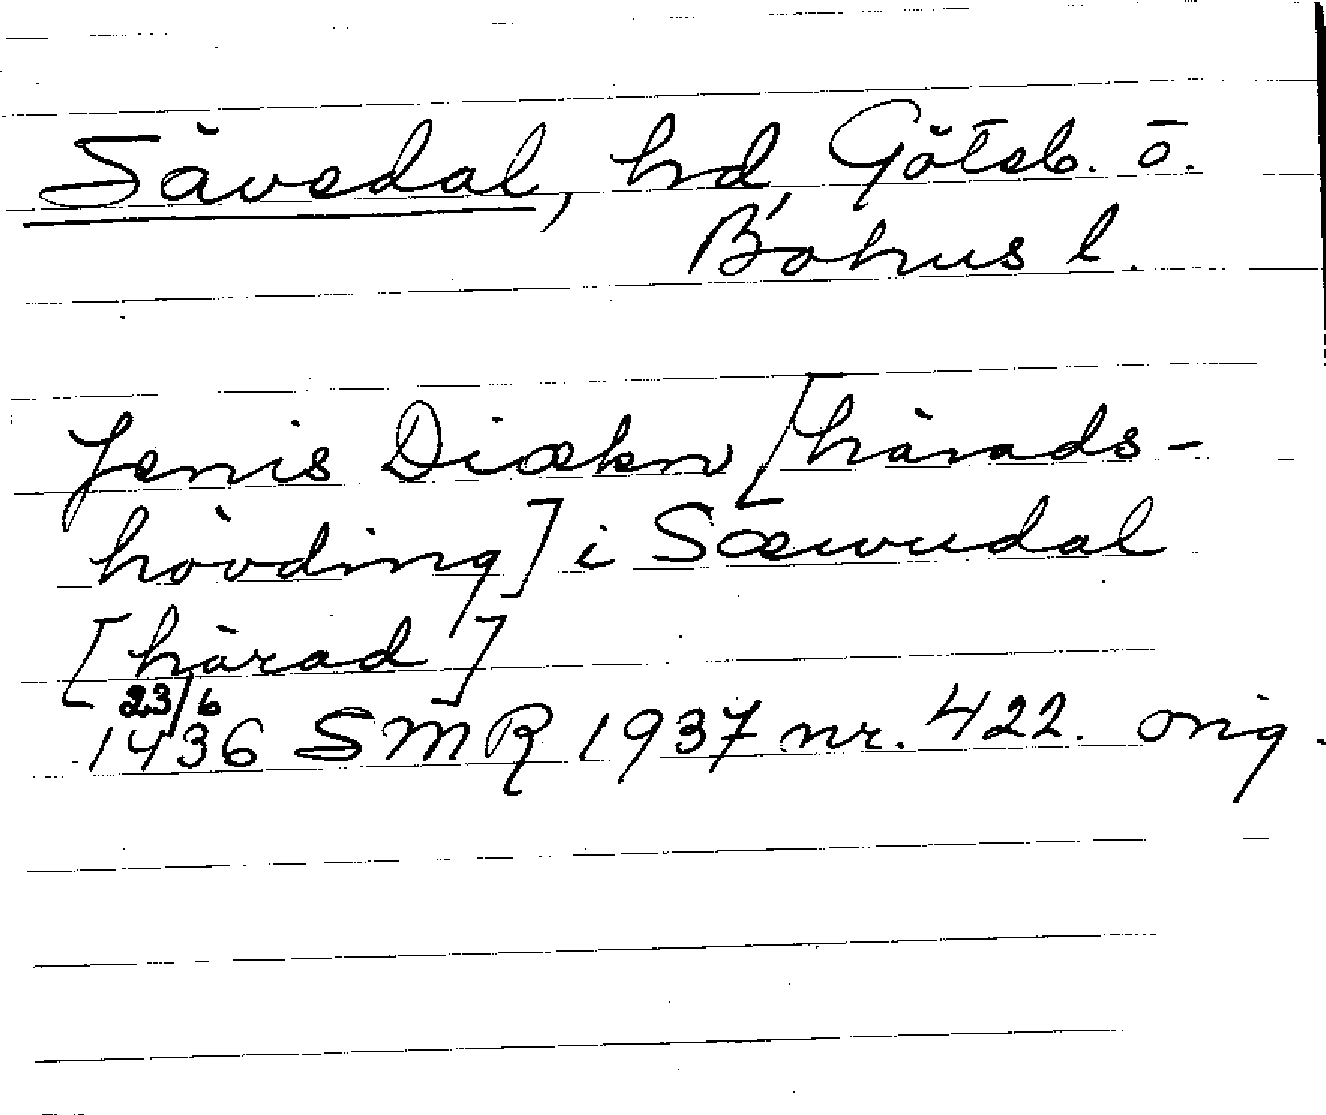 Sävedal, hd, Göteb. o.
Bohus l.
Jenis Diækn [härads-
hövding] i Sæwudal
[härad]
23/6
1436 SMR 1937 nr. 422. orig.